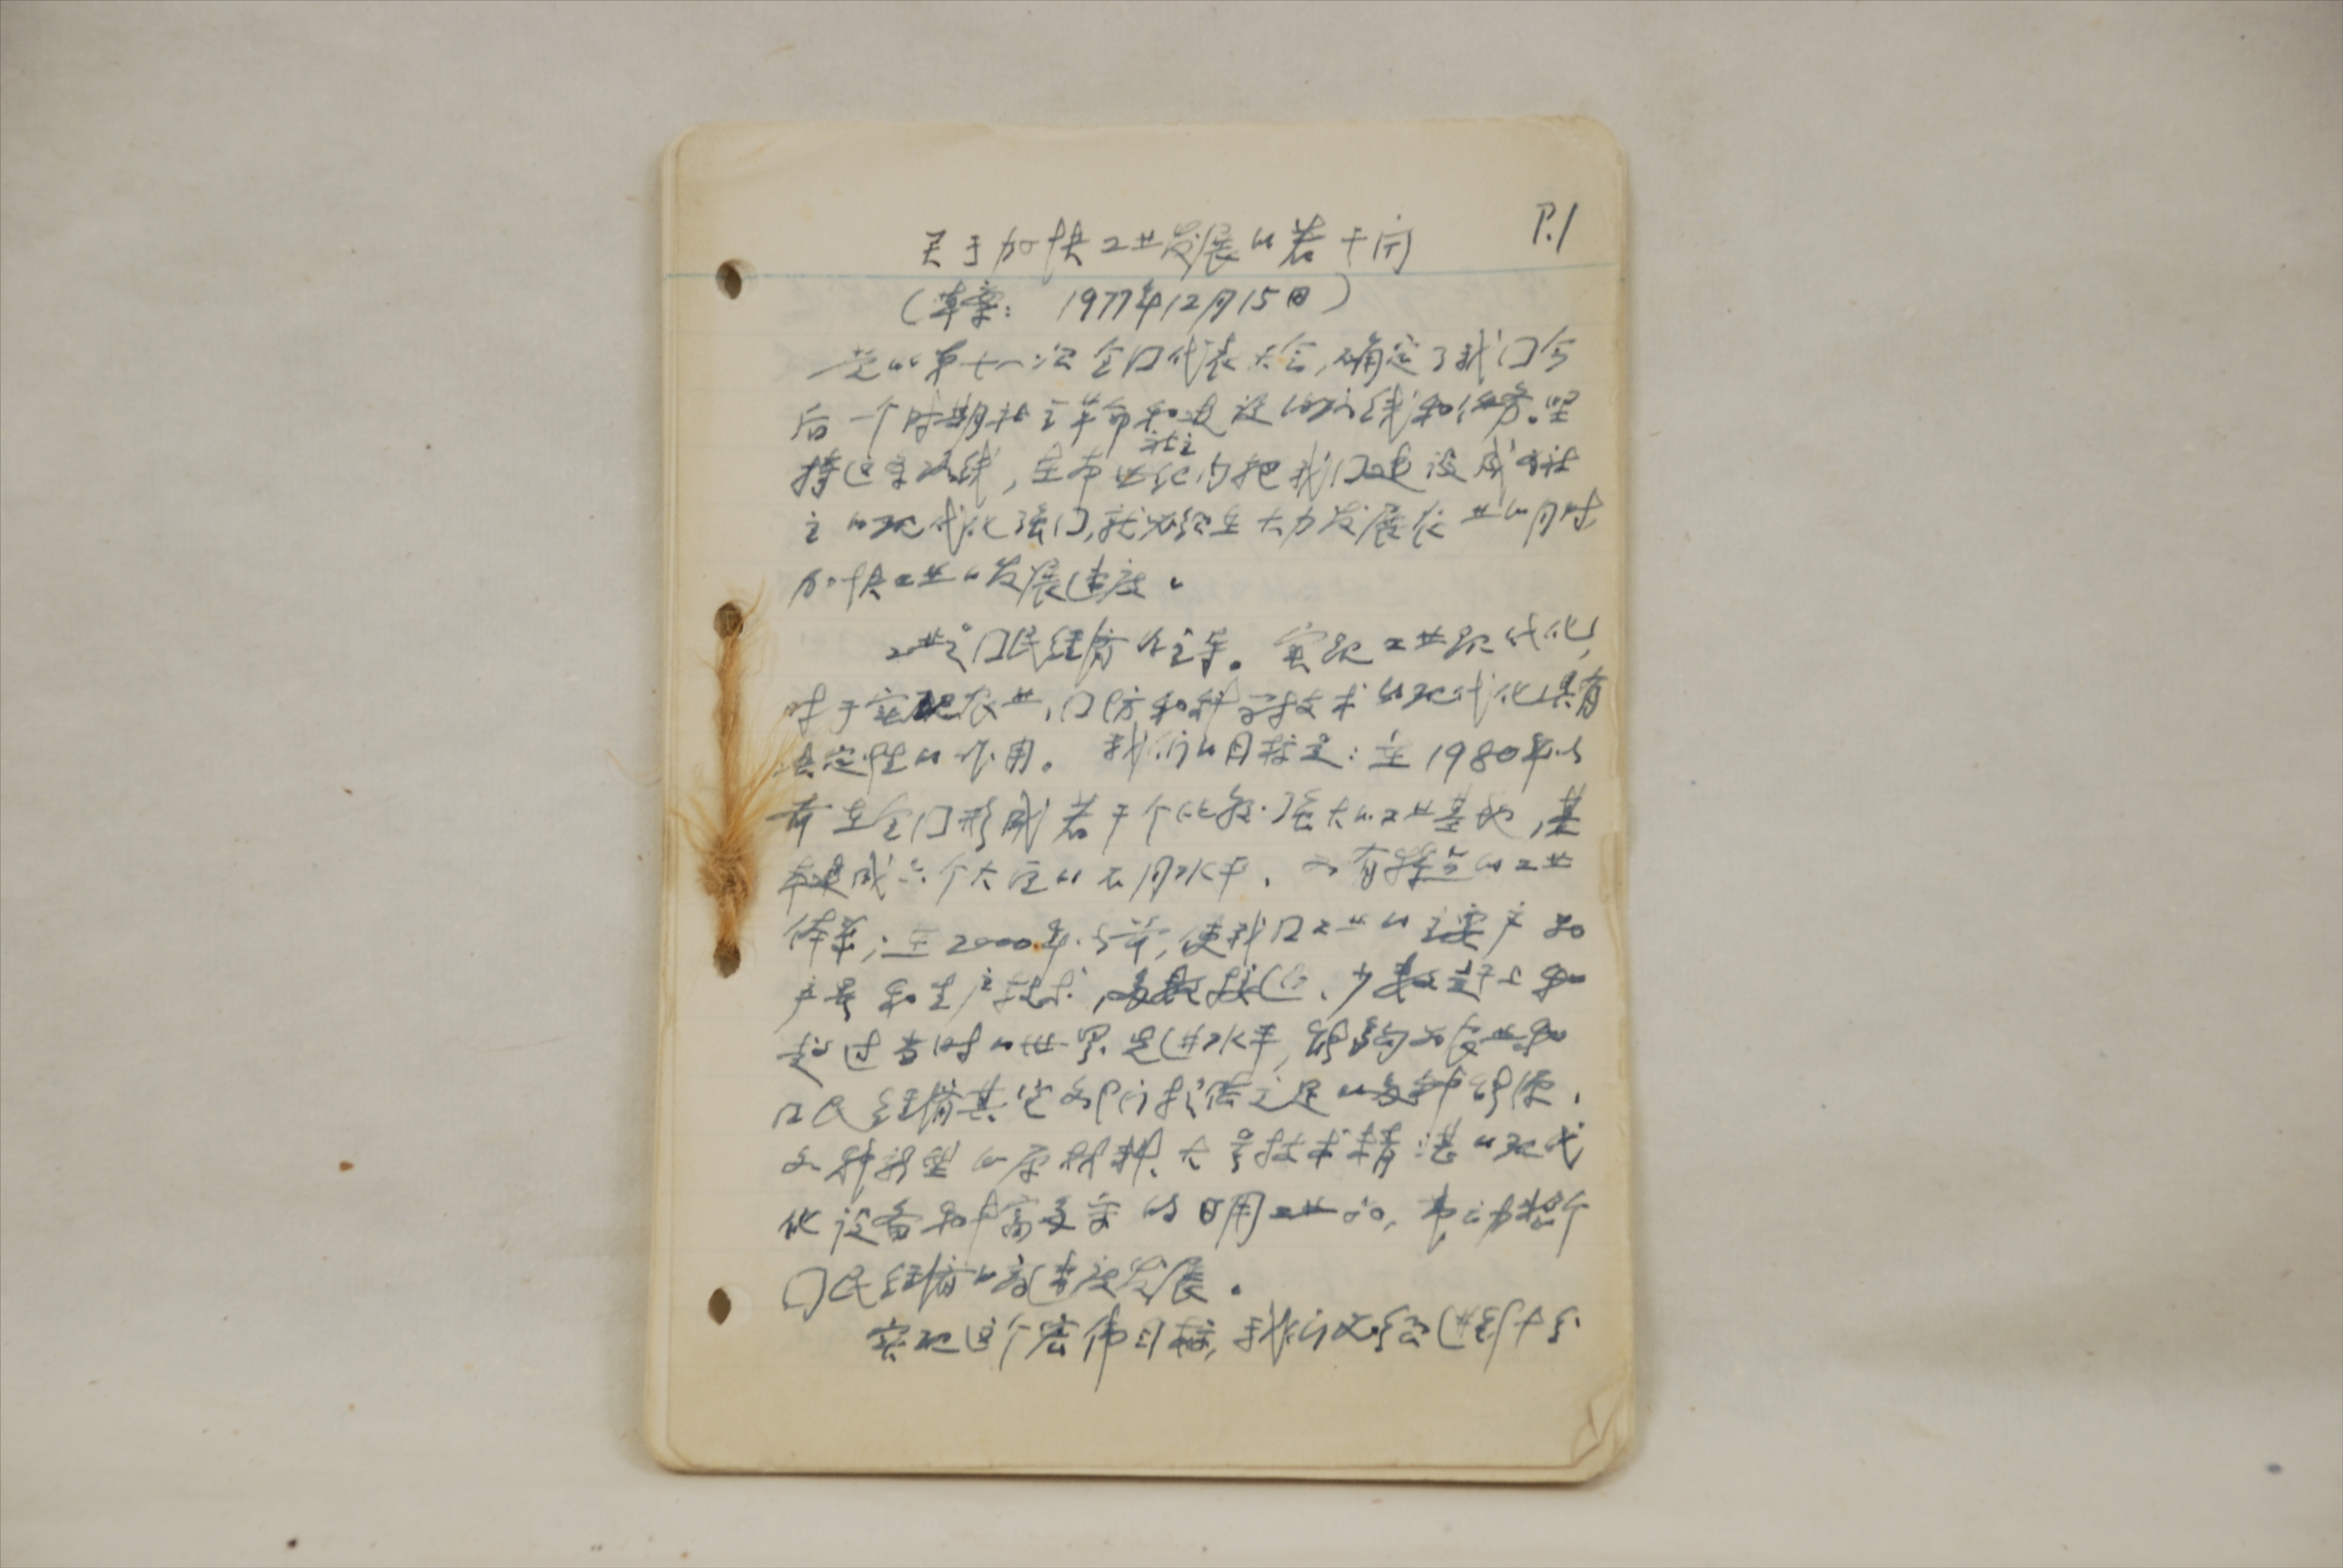 P.1
关于加快工业发展的若干问
(草案: 1977年12月15日)
党的第十一次全囗代表大会,确定了我囗今
后一个时期社主革命和建设的路线和任务。坚
持这条路线,在本世纪内把我囗建设成为社
主的现代化强囗,就必须在大力发展农业的同时
加快工业的发展速度。
工业是囗民经济的主导。实现工业现代化,
对于实现农业、囗防和科学技术的现代化具有
决定性的作用。我们的目标是:在1980年以
前在全囗形成若干个比较强大的工业基地,基
本建成六个大区的不同水平、各有特点的工业
体系;在2000年以前,使我囗工业的主要产品
产量和生产技术,多数接近、少数赶上和
超过当时的世界先进水平,能够为农业和
囗民经济其它部门提供充足的多种能源、
各种新型的原材料、大量技术精湛的现代
化设备和丰富多采的日用工业品,带动整个
囗民经济的高速度发展。
实现这个宏伟目标,我们必须进行十分